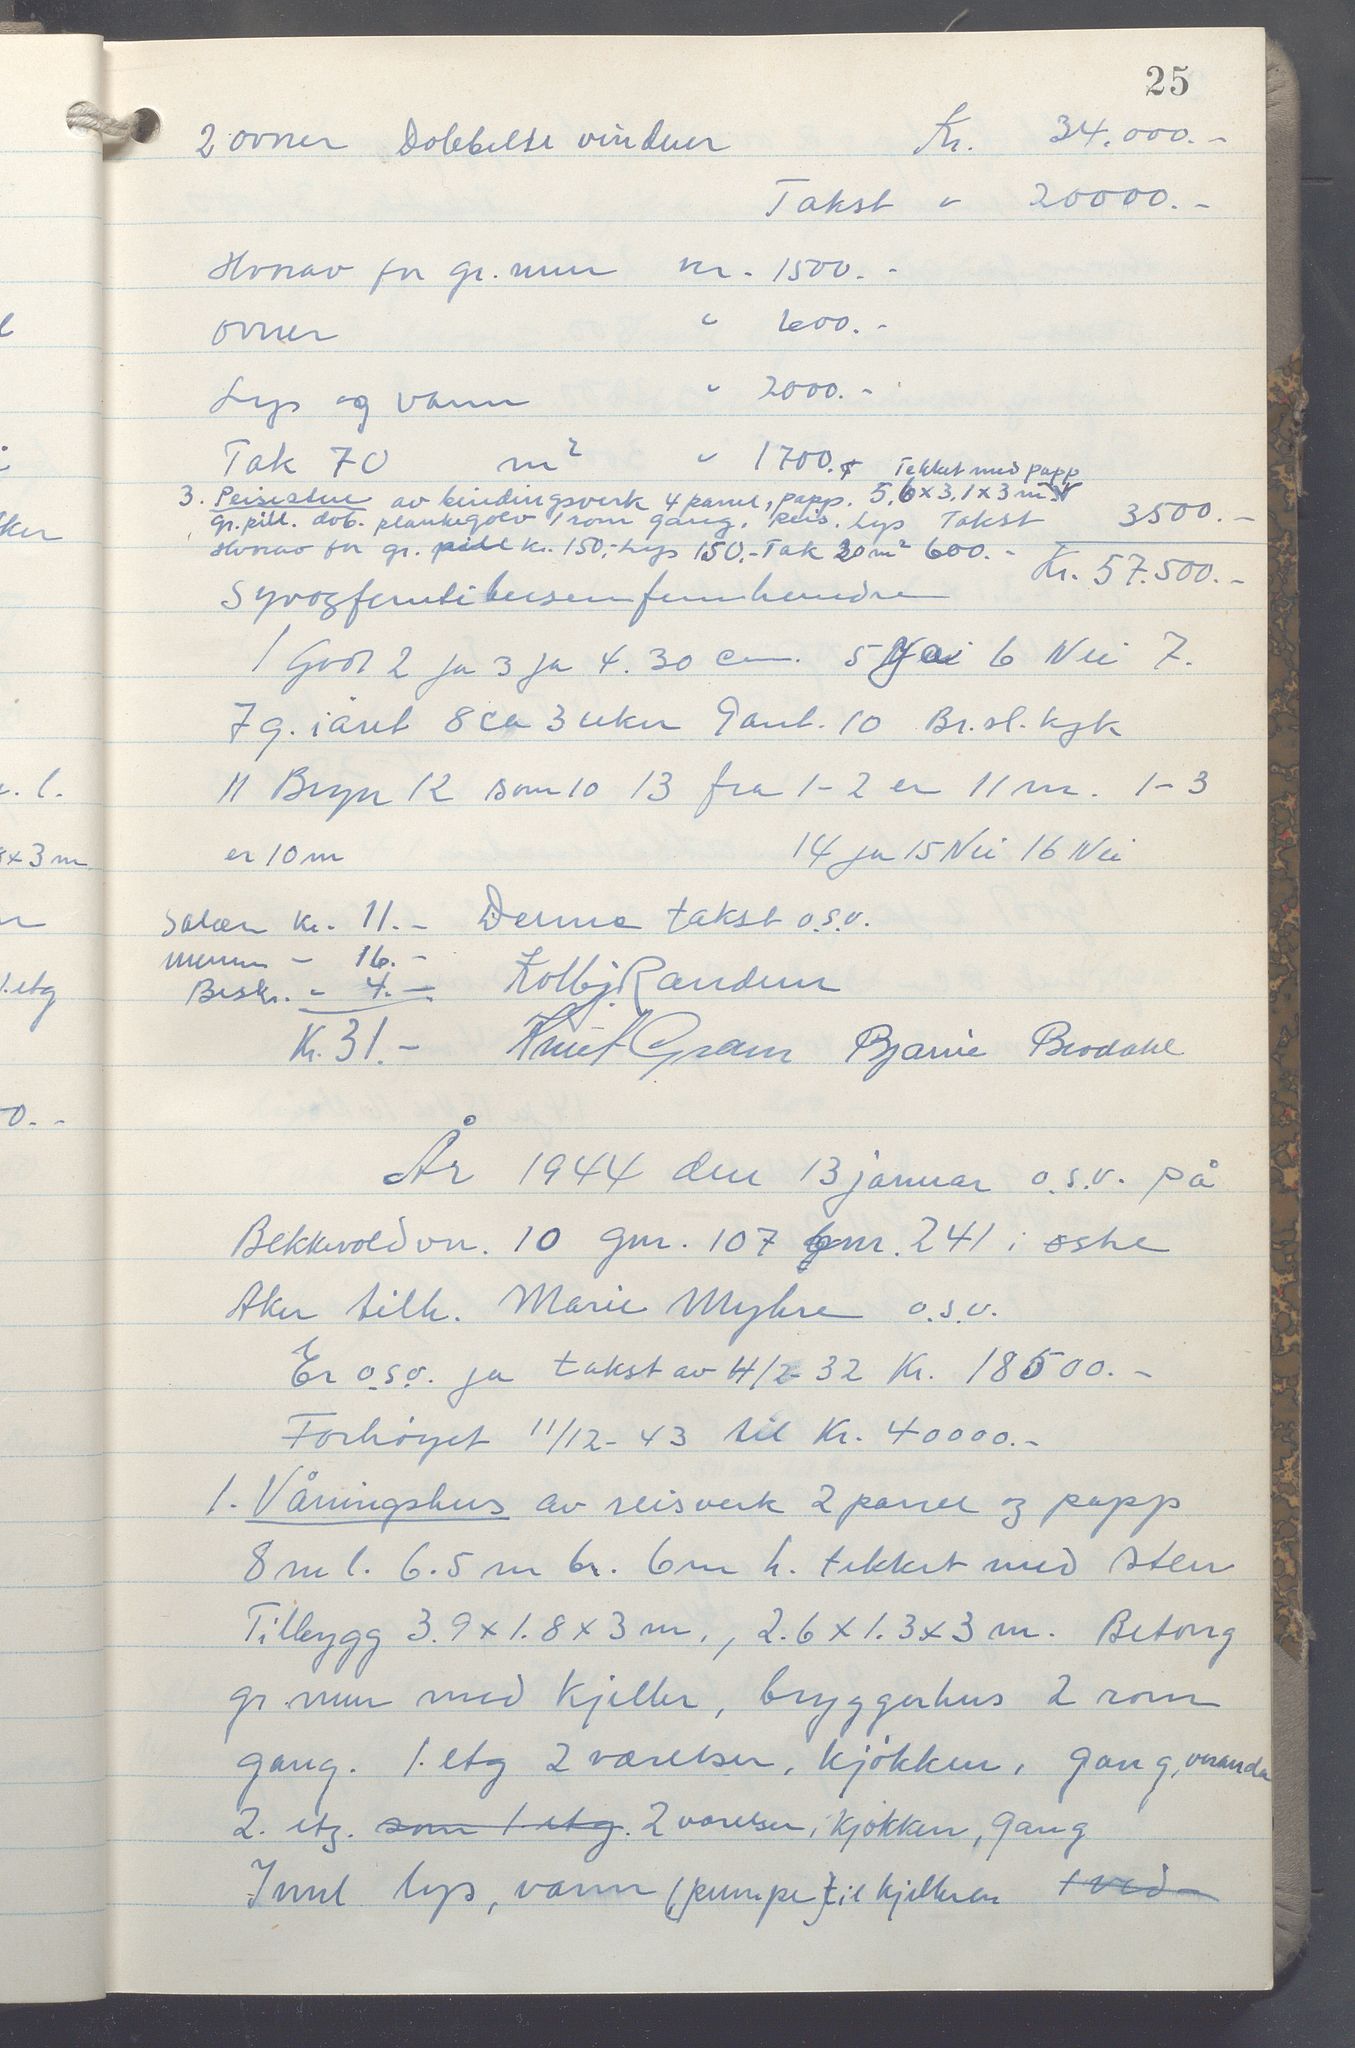 25
2 ovner, Dobbelte vinduer Kr. 34.000.-
Takst " 20000.-
Hvorav for gr. mur kr. 1500.-
ovner " 600.-
Lys og vann " 2000.-
Tak 70 m² " 1700.- Tekket med papp
3. Peisestue av bindingsverk 4 panel, papp. 5,6 x 3,1 x 3 m
gr. pill. dob. plankegolv 1 rom gang, peis. Lys Takst 3500.-
Hvorav for gr. pill kr. 150,- Lys 150.- Tak 20 m² 600.- Kr. 57.500.-
Syvogfemtitusenfemhundre
1 God 2 ja 3 ja 4. 30 cm. 5 6 Nei 7.
7 g. i året 8 ca 3 uker 9 ant. 10 Br. sl. kyk
11 Bryn 12 som 10 13 fra 1-2 er 11 m. 1-3
er 10 m 14 ja 15 Nei 16 Nei
Salær kr. 11.- Denne takst o.s.v.
- 16.-
Beskr. " 4.- Kolbj. Randem
Kr. 31.- Knut Gram Bjarne Brodahl
År 1944 den 13 januar o.s.v. på
Bekkevoldvn. 10 gnr. 107 bnr. 241 i østre
Aker tilh. Marie Myhre o.s.v.
Er o.s.v. ja takst av 4/2-32 Kr. 18500.-
Forhøyet 11/12-43 til Kr. 40000.-
1. Våningshus av reisverk 2 panel og papp
8 m l. 6.5 m br. 6 m h. tekket med sten
Tilbygg 3.9 x 1.8 x 3 m., 2.6 x 1.3 x 3 m. Betong
gr. mur med kjeller, bryggerhus 2 rom
gang. 1. etg 2 værelser, kjøkken, gang, veranda
2. etg. som 1. etg. 2 værelser, kjøkken, gang
Innl lys, vann (pumpe) til kjelleren